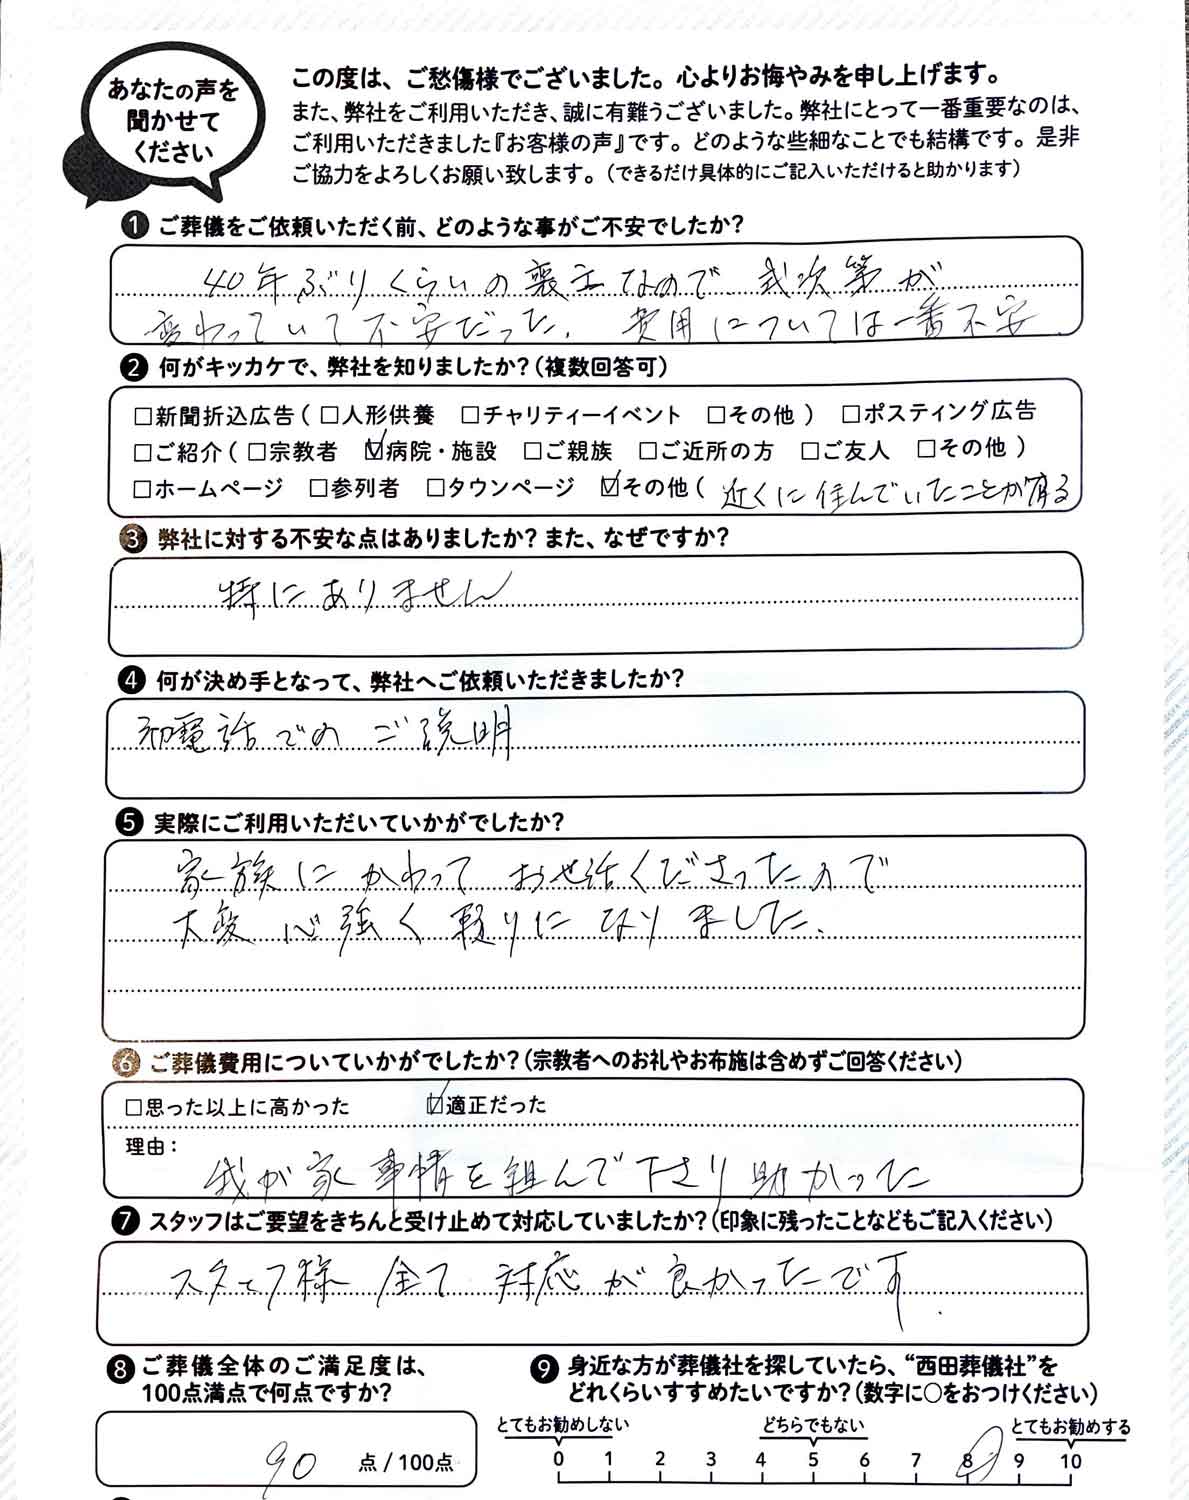 あなたの声を
聞かせて
ください
この度は、ご愁傷様でございました。心よりお悔やみを申し上げます。
また、弊社をご利用いただき、誠に有難うございました。弊社にとって一番重要なのは、
ご利用いただきました『お客様の声』です。どのような些細なことでも結構です。是非
ご協力をよろしくお願い致します。（できるだけ具体的にご記入いただけると助かります）
❶ ご葬儀をご依頼いただく前、どのような事がご不安でしたか？
40年ぶりくらいの喪主なので 式次第が
変わっていて不安だった。費用については一番不安。
❷ 何がキッカケで、弊社を知りましたか？（複数回答可）
□新聞折込広告（ □人形供養 □チャリティーイベント □その他 ） □ポスティング広告
□ご紹介（ □宗教者 ☑病院・施設 □ご親族 □ご近所の方 □ご友人 □その他 ）
□ホームページ □参列者 □タウンページ ☑その他（ 近くに住んでいたことが有る
❸ 弊社に対する不安な点はありましたか？また、なぜですか？
特にありません
❹ 何が決め手となって、弊社へご依頼いただきましたか？
初電話での ご説明
❺ 実際にご利用いただいていかがでしたか？
家族に かわって お世話くださったので
大変 心強く 頼りに なりました。
❻ ご葬儀費用についていかがでしたか？（宗教者へのお礼やお布施は含めずご回答ください）
□思った以上に高かった ☑適正だった
理由：
我が家 事情を 組んで下さり 助かった
❼ スタッフはご要望をきちんと受け止めて対応していましたか？（印象に残ったことなどもご記入ください）
スタッフ様 全て 対応が 良かったです。
❽ ご葬儀全体のご満足度は、
100点満点で何点ですか？
90 点 / 100点
❾ 身近な方が葬儀社を探していたら、“西田葬儀社”を
どれくらいすすめたいですか？（数字に○をおつけください）
とてもお勧めしない どちらでもない とてもお勧めする
0 1 2 3 4 5 6 7 8 9 10